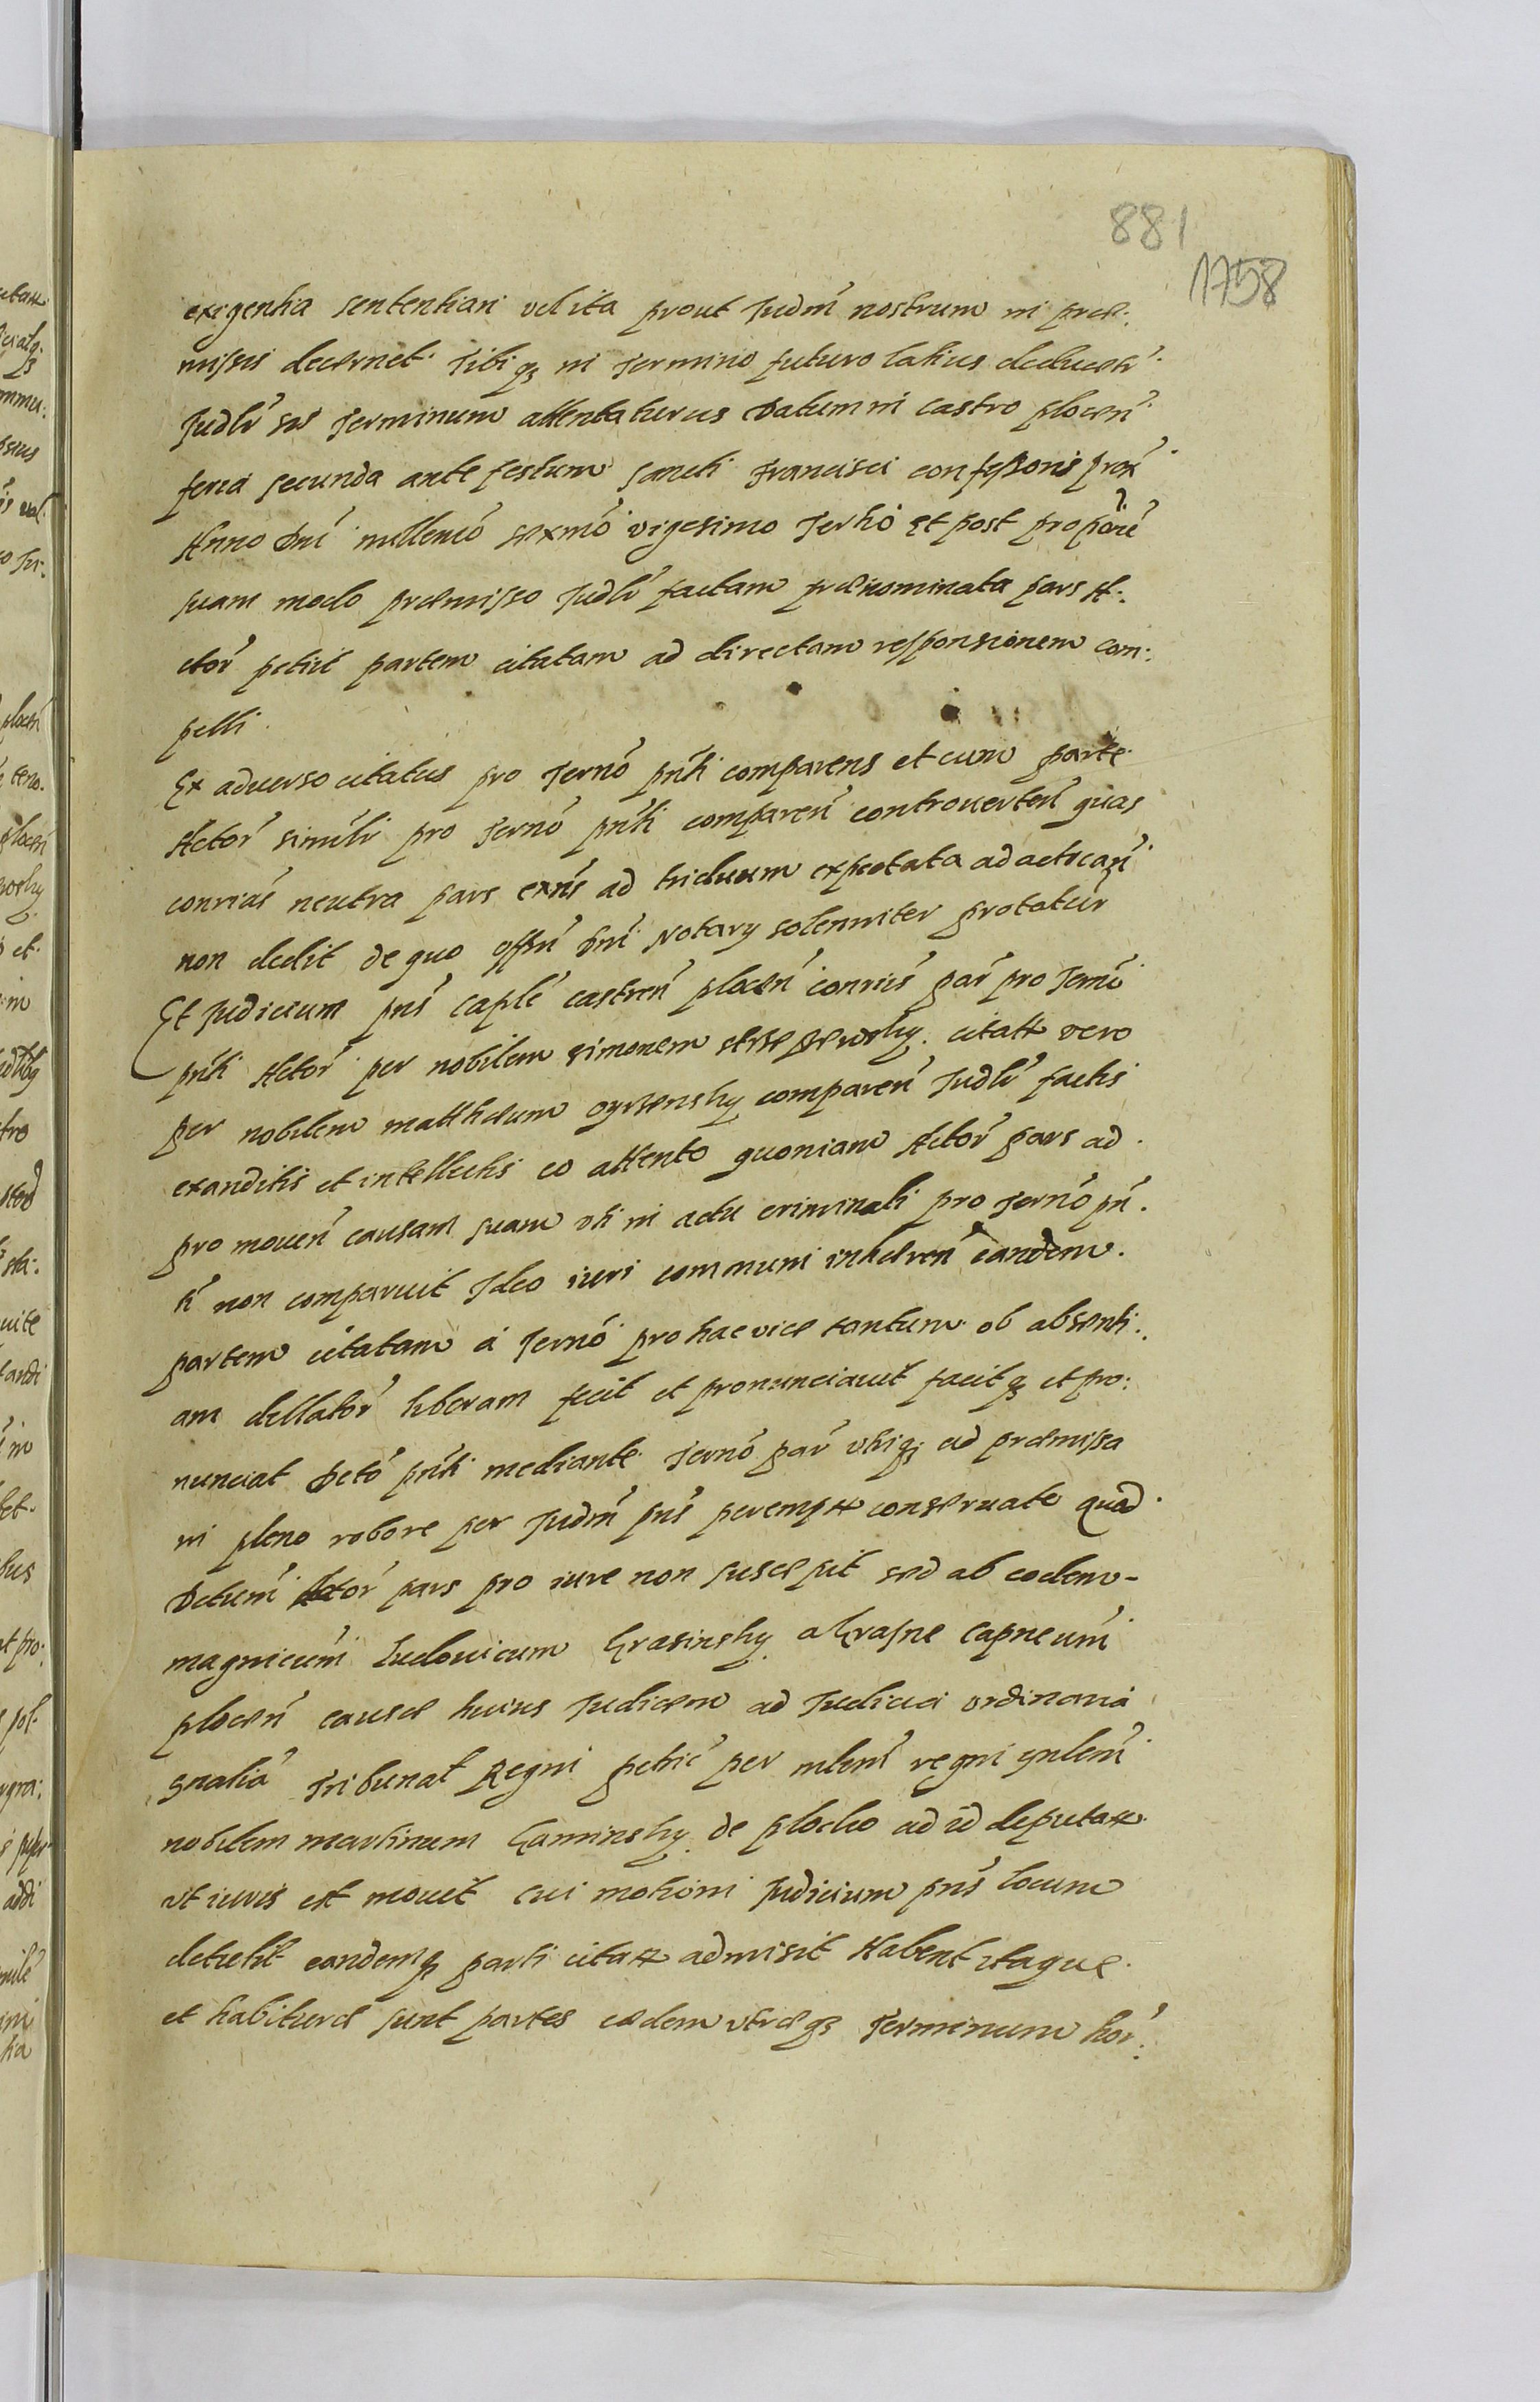 881
1758
exigentia sententiari vel ita prout Judm̃ nostrum in prae:
missis decernet. Tibiq; in Termino futuro latius deducetr̃.
Judlr̃ sis Terminum attentaturus Datum in castro plocen̄
feria secunda ante festum Sancti Francisci confessoris prox̃
Anno Dnĩ millemõ sexmõ vigesimo Tertio Et post propõnẽ
suam modo praemisso Judlr̃ factam praenominata pars A:
ctor̃ petiit partem citatam ad directam responsionem com:
pelli.
Ex adverso citatus pro Ternõ pñti comparens et cum parte
Actor̃ similr̃ pro Ternõ pñti comparen̄ controverten̄ quas
conrias̃ neutra pars exñs ad triduum expectata ad acticañ
non dedit de quo offñ Dnĩ Notarij solemniter protatur̃
Et Judicium pñs caplẽ castren̄ plocen̄ conriis̃ par̃ pro Ternõ
pñti Actor̃ per nobilem Simonem citatt vero
per nobilem Mattheum comparen̄ Judlr̃ factis
exauditis et intellectis eo attento quoniam Actor̃ pars ad
promoven̄ causam suam vti in actu criminali pro Ternõ pñ.
ti non comparuit Ideo iuri communi inhaeren̄ eandem
partem citatam à Ternõ pro hac vice tantum ob absenti:
am dellator̃ liberam fecit et pronunciavit facitq; et pro:
nunciat Dctõ pñti mediante Ternõ par̃ vtriq; ad praemissa
in pleno robore per Judm̃ pñs peremptt conservato Quod
Dctum̃ Actor̃ pars pro iure non suscepit sed ab eodem
magnicum̃ Ludovicum Krasinsky a Krasne Capneum̃
plocen̄ causae huius Judicem ad Judicia ordinaria
gnalia Tribunal̃ Regni petric̃ per mlem̃ regni gnlem̃
nobilem Martinum Kaminsky de plocko ad id deputatt
vt iuris est movit cui motioni Judicium pñs locum
detulit eandemq; parti citatt admisit Habent itaque
et habiturae sunt partes eaedem vtraeq; Terminum hor̃: